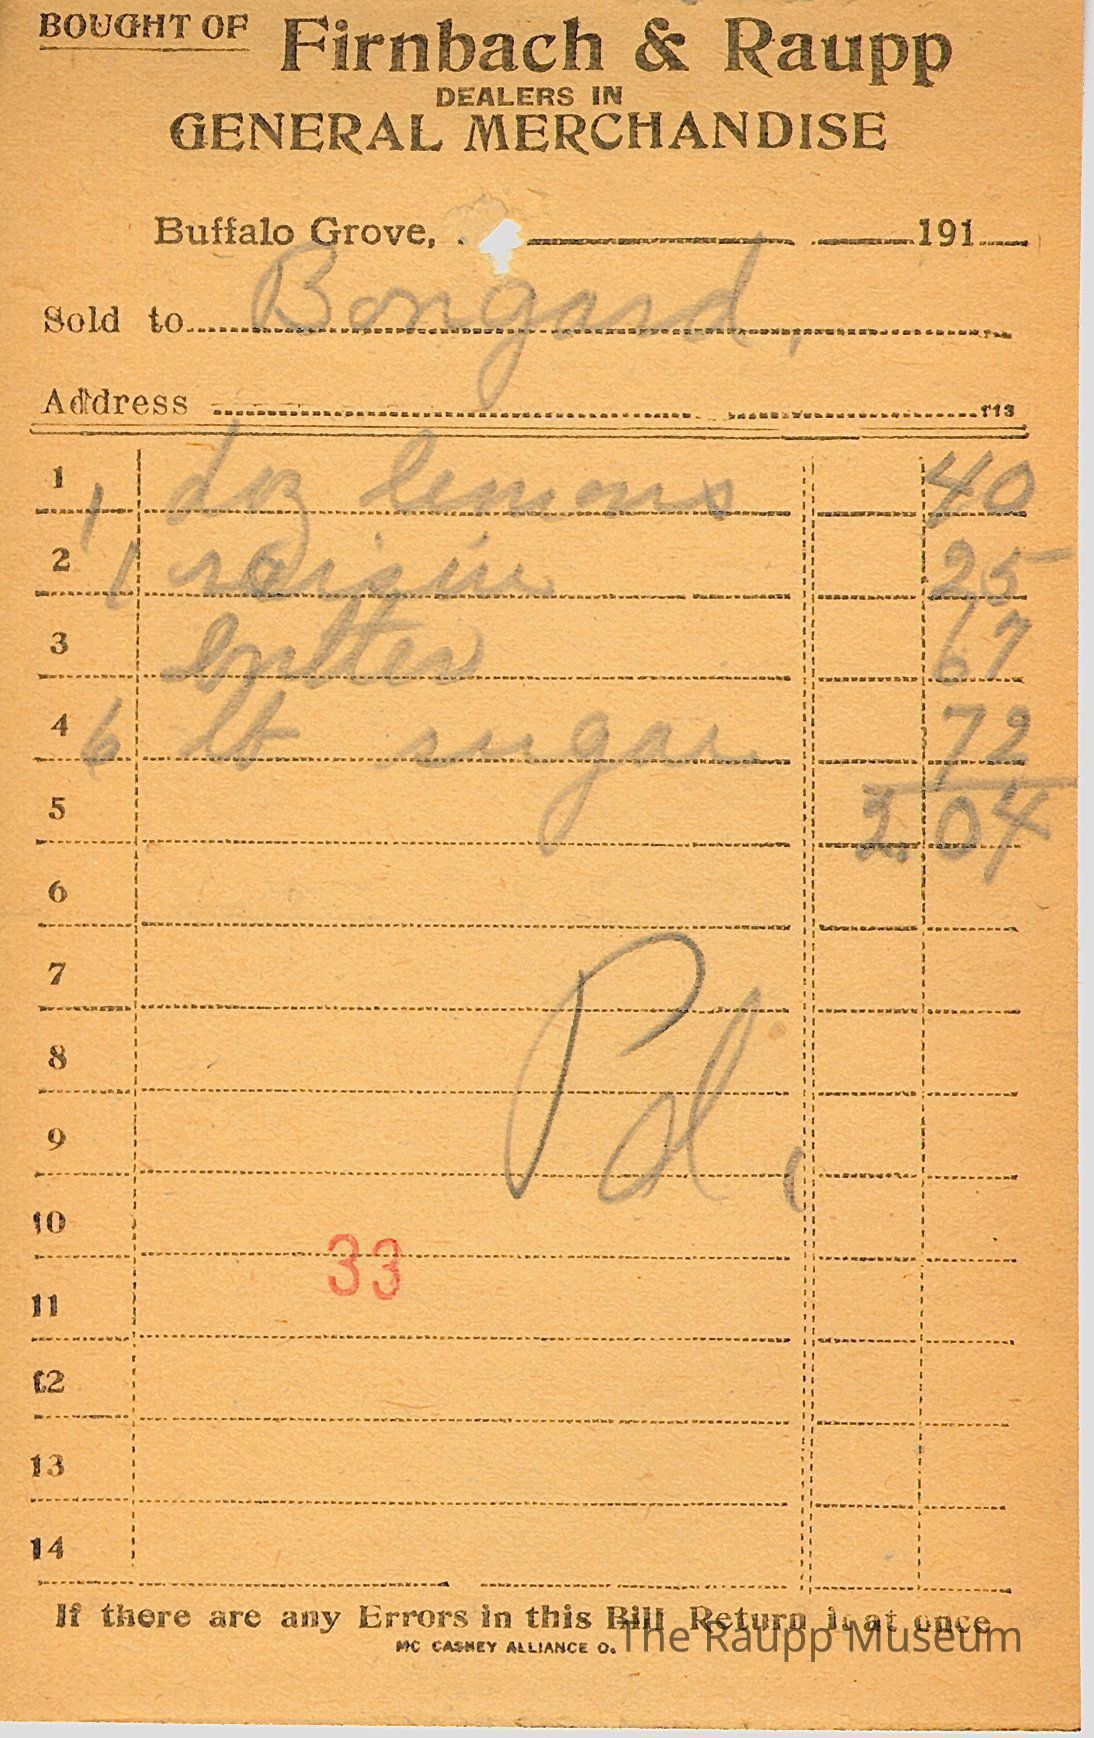 BOUGHT OF Firnbach & Raupp
DEALERS IN
GENERAL MERCHANDISE
Buffalo Grove, 191
Sold to Bongard,
Address
1 1 doz lemons 40
2 1 raisin 25
3 butter 67
4 6 lb sugar 72
5 2.04
6
7
8 Pd.
9
10
33
11
12
13
14
If there are any Errors in this Bill Return it at once
MC CASKEY ALLIANCE O.
The Raupp Museum